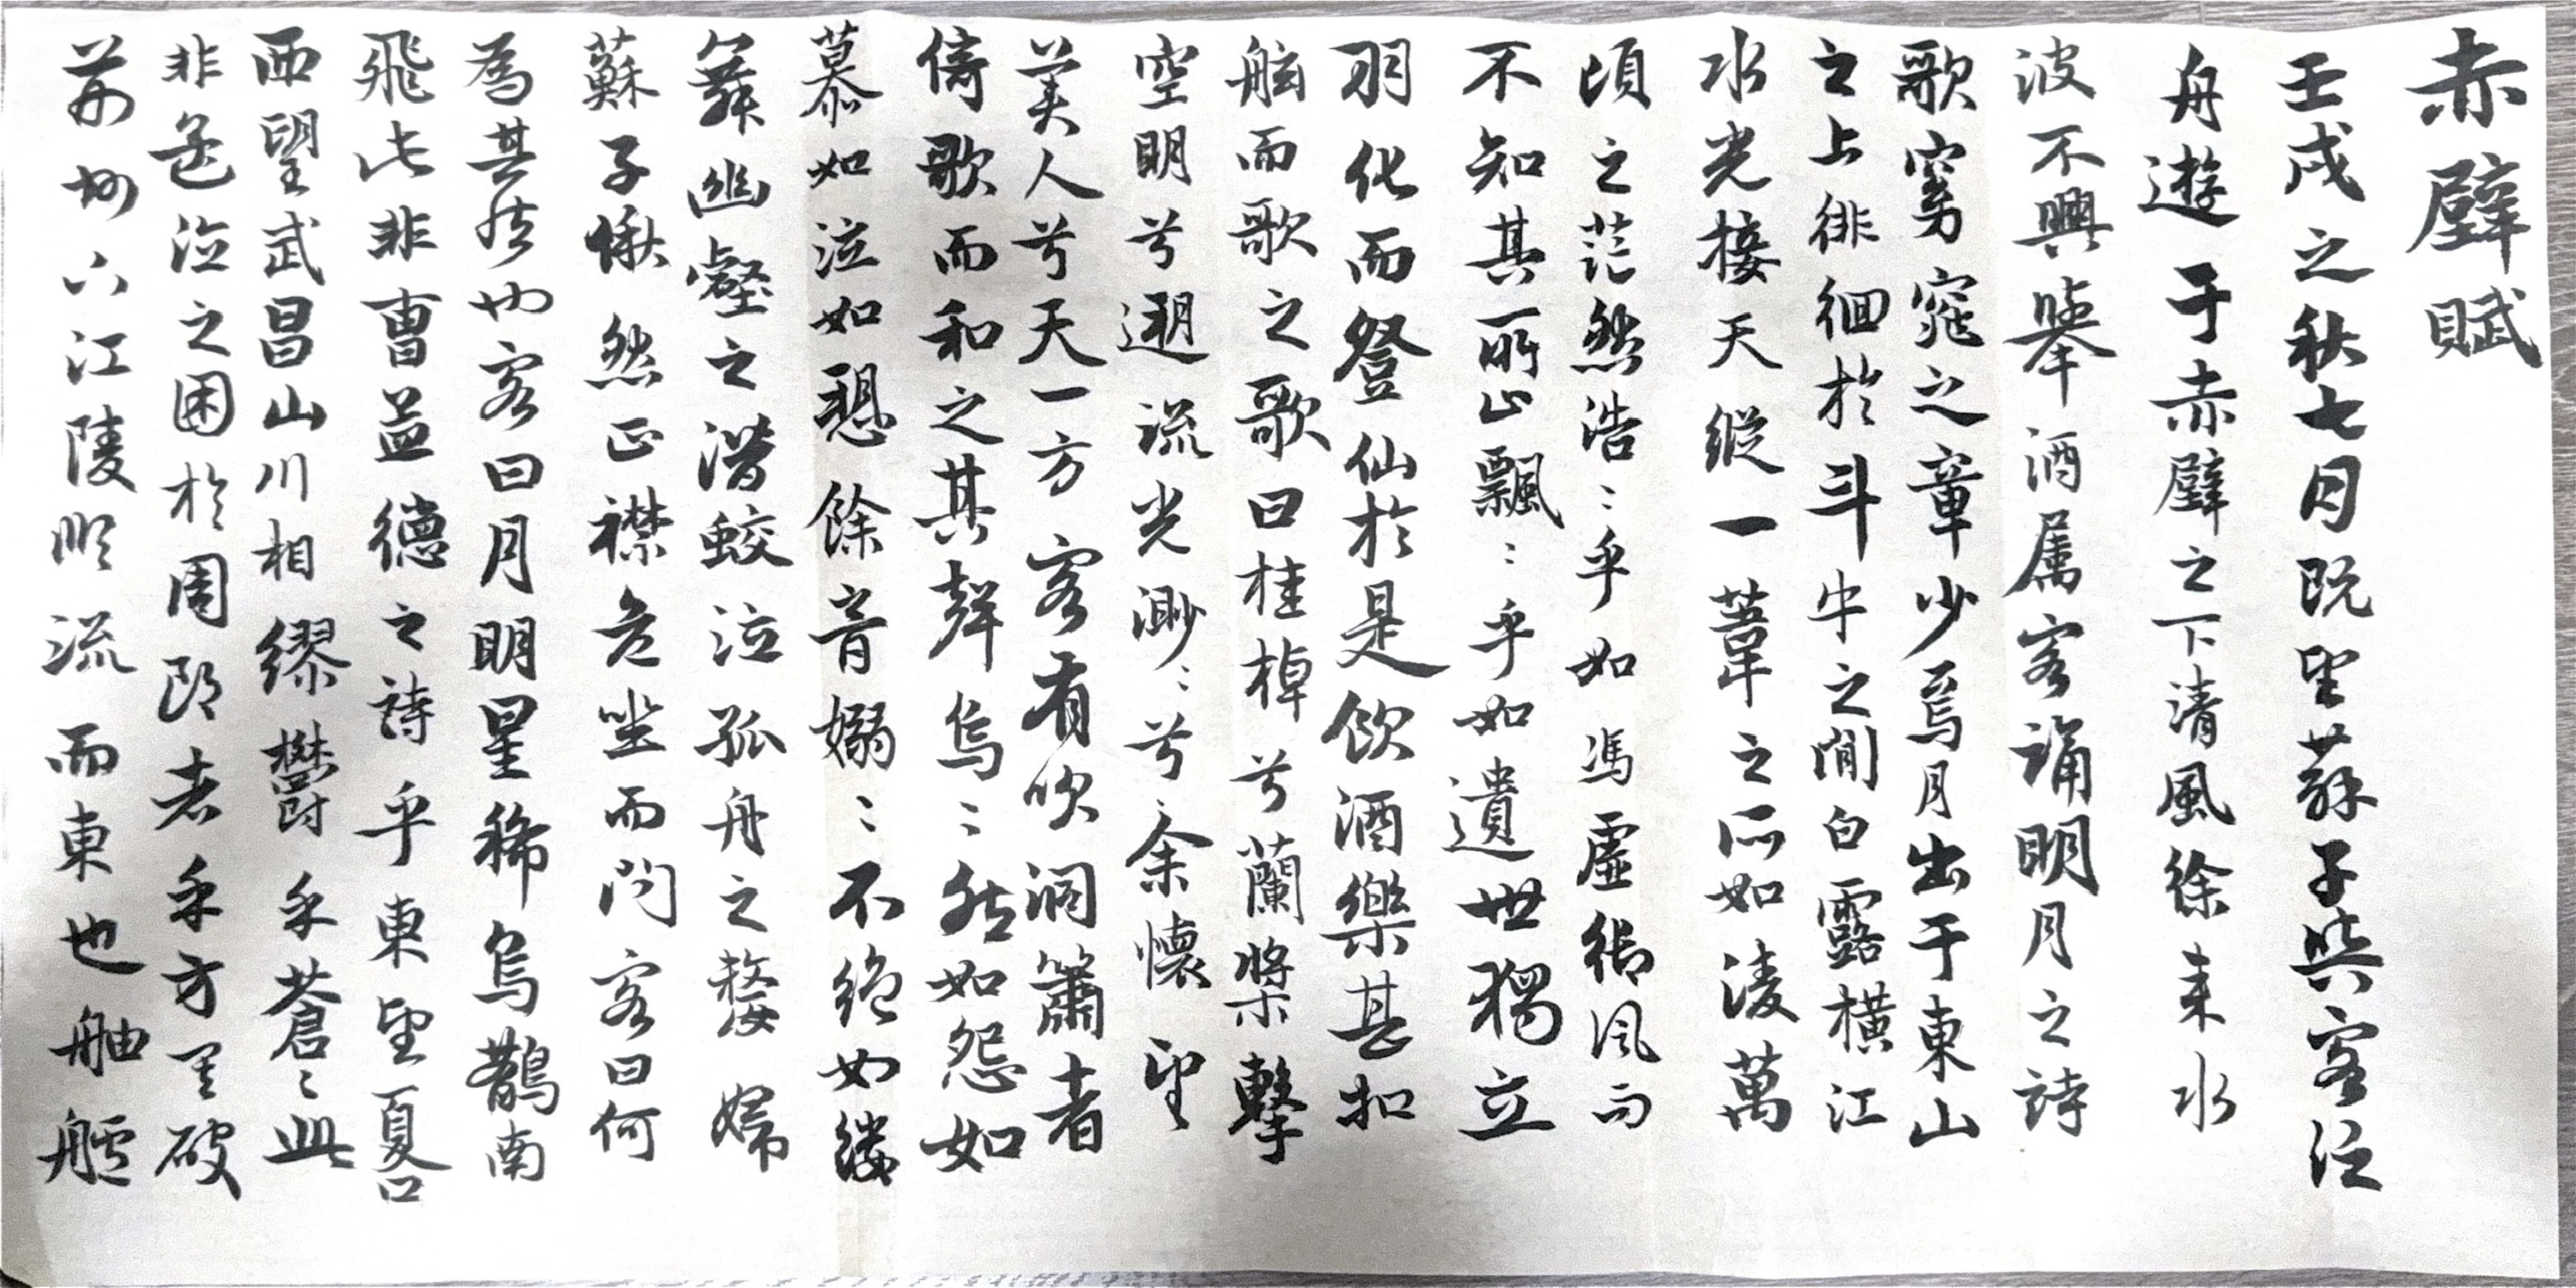 赤壁賦
壬戌之秋七月既望蘇子與客泛
舟遊于赤壁之下清風徐来水
波不興舉酒属客誦明月之詩
歌窈窕之章少焉月出于東山
之上徘徊於斗牛之間白露横江
水光接天縱一葦之所如凌萬
頃之茫然浩〻乎如馮虛御風而
不知其所止飄〻乎如遺世獨立
羽化而登仙於是飲酒樂甚扣
舷而歌之歌曰桂棹兮蘭槳擊
空明兮遡流光渺〻兮余懷望
美人兮天一方客有吹洞簫者
倚歌而和之其聲烏〻然如怨如
慕如泣如愬餘音嫋〻不絕如縷
舞幽壑之潛蛟泣孤舟之嫠婦
蘇子愀然正襟危坐而問客曰何
為其然也客曰月明星稀烏鵲南
飛此非曹孟德之詩乎東望夏口
西望武昌山川相繆鬱乎蒼〻此
非孟德之困於周郎者乎方其破
荊州下江陵順流而東也舳艫